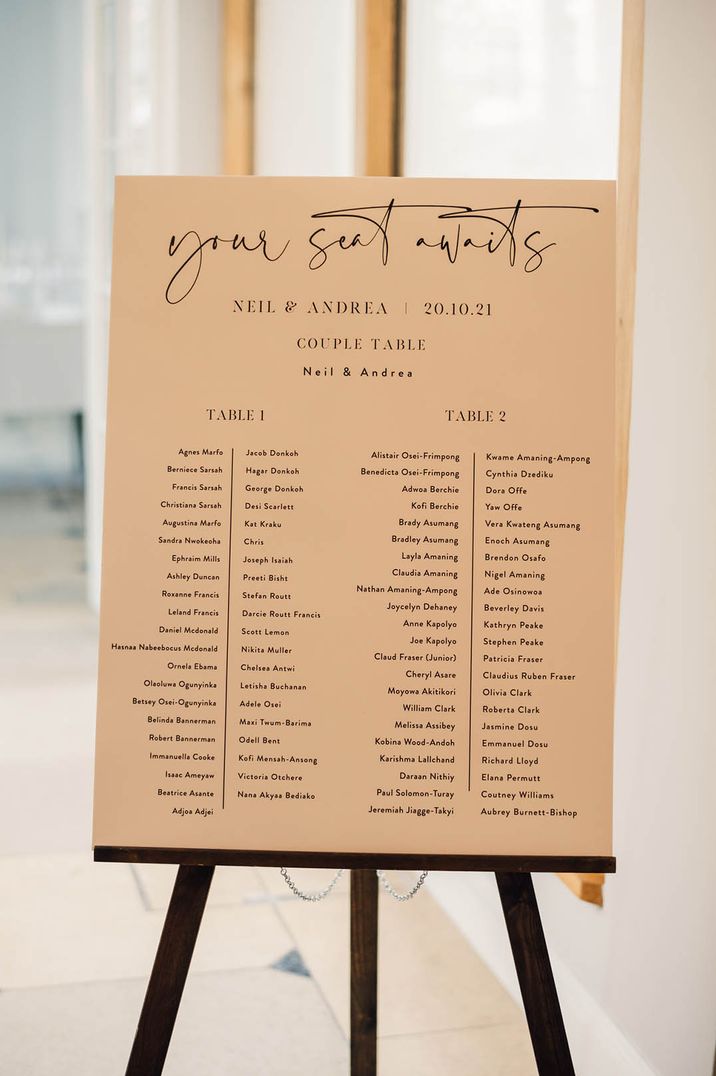 your seat awaits
NEIL & ANDREA | 20.10.21
COUPLE TABLE
Neil & Andrea
TABLE 1
Agnes Marfo
Berniece Sarsah
Francis Sarsah
Christiana Sarsah
Augustina Marfo
Sandra Nwokeoha
Ephraim Mills
Ashley Duncan
Roxanne Francis
Leland Francis
Daniel Mcdonald
Hasnaa Nabeebocus Mcdonald
Ornela Ebama
Olaoluwa Ogunyinka
Betsey Osei-Ogunyinka
Belinda Bannerman
Robert Bannerman
Immanuella Cooke
Isaac Ameyaw
Beatrice Asante
Adjoa Adjei
Jacob Donkoh
Hagar Donkoh
George Donkoh
Desi Scarlett
Kat Kraku
Chris
Joseph Isaiah
Preeti Bisht
Stefan Routt
Darcie Routt Francis
Scott Lemon
Nikita Muller
Chelsea Antwi
Letisha Buchanan
Adele Osei
Maxi Twum-Barima
Odell Bent
Kofi Mensah-Ansong
Victoria Otchere
Nana Akyaa Bediako
TABLE 2
Alistair Osei-Frimpong
Benedicta Osei-Frimpong
Adwoa Berchie
Kofi Berchie
Brady Asumang
Bradley Asumang
Layla Amaning
Claudia Amaning
Nathan Amaning-Ampong
Joycelyn Dehaney
Anne Kapolyo
Joe Kapolyo
Claud Fraser (Junior)
Cheryl Asare
Moyowa Akitikori
William Clark
Melissa Assibey
Kobina Wood-Andoh
Karishma Lallchand
Daraan Nithiy
Paul Solomon-Turay
Jeremiah Jiagge-Takyi
Kwame Amaning-Ampong
Cynthia Dzediku
Dora Offe
Yaw Offe
Vera Kwateng Asumang
Enoch Asumang
Brendon Osafo
Nigel Amaning
Ade Osinowoa
Beverley Davis
Kathryn Peake
Stephen Peake
Patricia Fraser
Claudius Ruben Fraser
Olivia Clark
Roberta Clark
Jasmine Dosu
Emmanuel Dosu
Richard Lloyd
Elana Permutt
Coutney Williams
Aubrey Burnett-Bishop